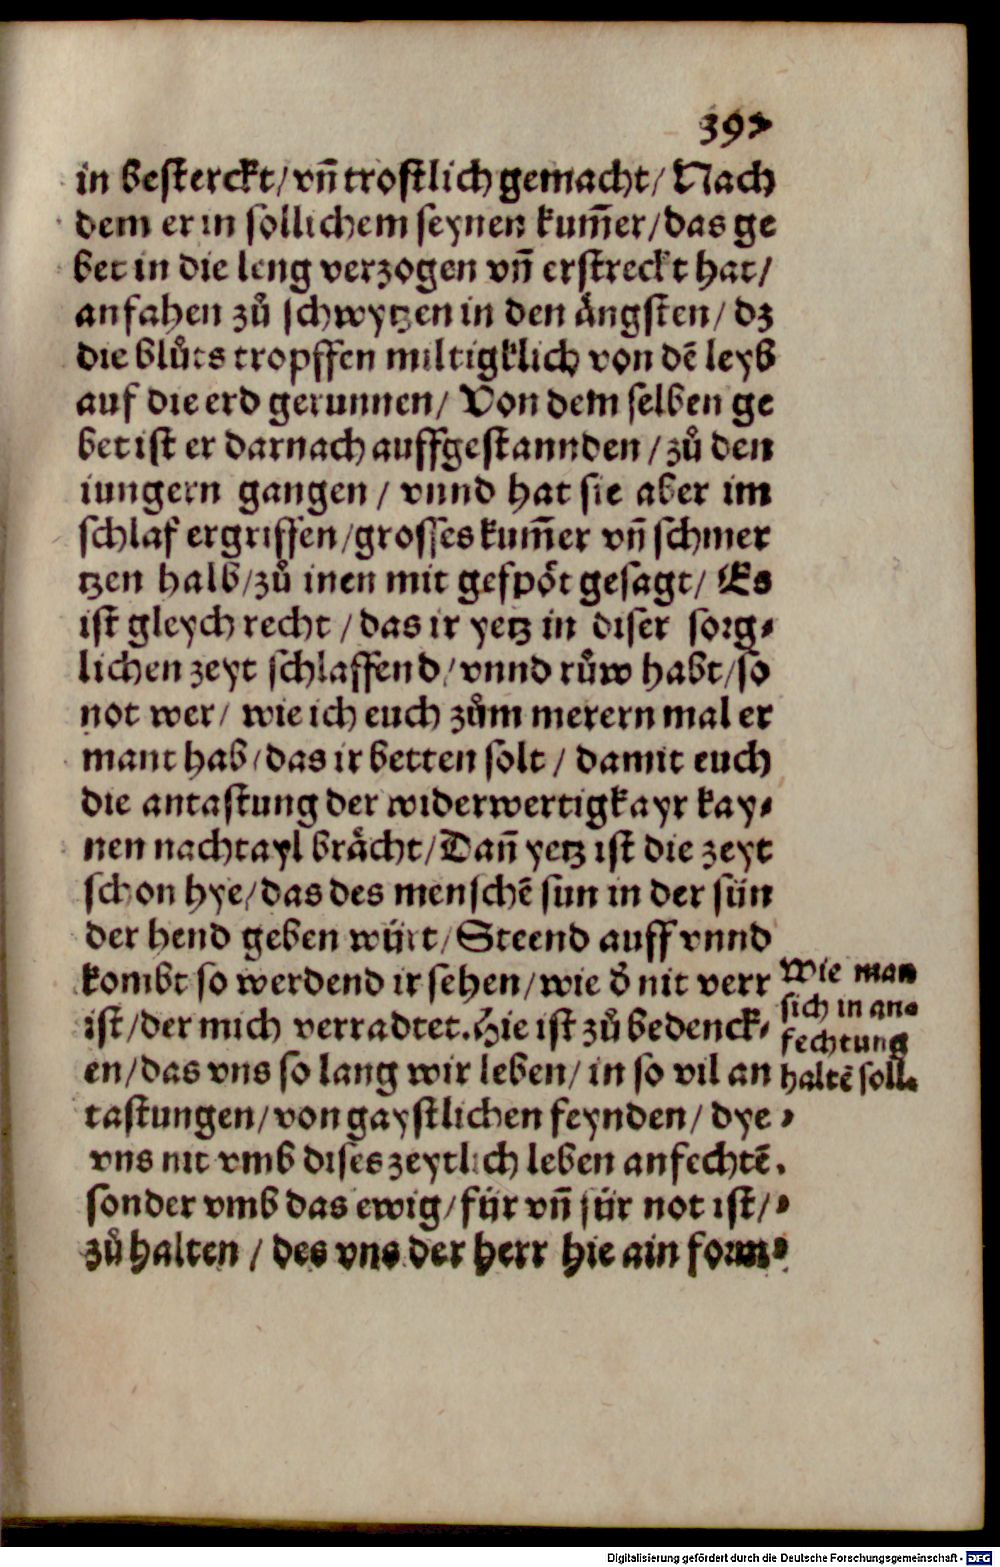 397
in besterckt/ vñ trostlich gemacht/ Nach
dem er in sollichem seynen kum̃er/ das ge
bet in die leng verzogen vñ erstreckt hat/
anfahen zů schwytzen in den ängsten/ dz
die blůts tropffen miltigklich von dẽ leyb
auf die erd gerunnen/ Von dem selben ge
bet ist er darnach auffgestannden/ zů den
iungern gangen/ vnnd hat sie aber im
schlaf ergriffen/ grosses kum̃er vñ schmer
tzen halb/ zů inen mit gespöt gesagt/ Es
ist gleych recht/ das ir yetz in diser sorg-
lichen zeyt schlaffend/ vnnd růw habt/ so
not wer/ wie ich euch zům merern mal er
mant hab/ das ir betten solt/ damit euch
die antastung der widerwertigkayt kay-
nen nachtayl brächt/ Dañ yetz ist die zeyt
schon hye/ das des menschẽ sun in der sün
der hend geben würt/ Steend auff vnnd
kombt so werdend ir sehen/ wie d̕ nit verr
ist/ der mich verradtet. Hie ist zů bedenck-
en/ das vns so lang wir leben/ in so vil an
tastungen/ von gaystlichen feynden/ dye-
vns nit vmb dises zeytlich leben anfechtẽ.
sonder vmb das ewig/ für vñ für not ist/-
zů halten/ des vns der herr hie ain form-
Wie man
sich in an-
fechtung
haltẽ soll.
Digitalisierung gefördert durch die Deutsche Forschungsgemeinschaft - DFG